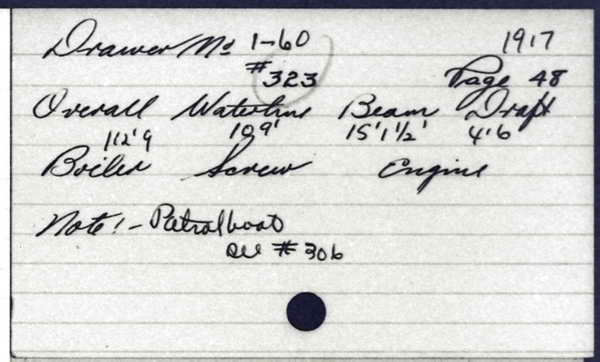 Drawer No 1-60 1917
#323 Page 48
Overall Waterline Beam Draft
112'9 109' 15'1 1/2' 4'6
Boiler Screw Engine
Note! - Patrolboat
See #306